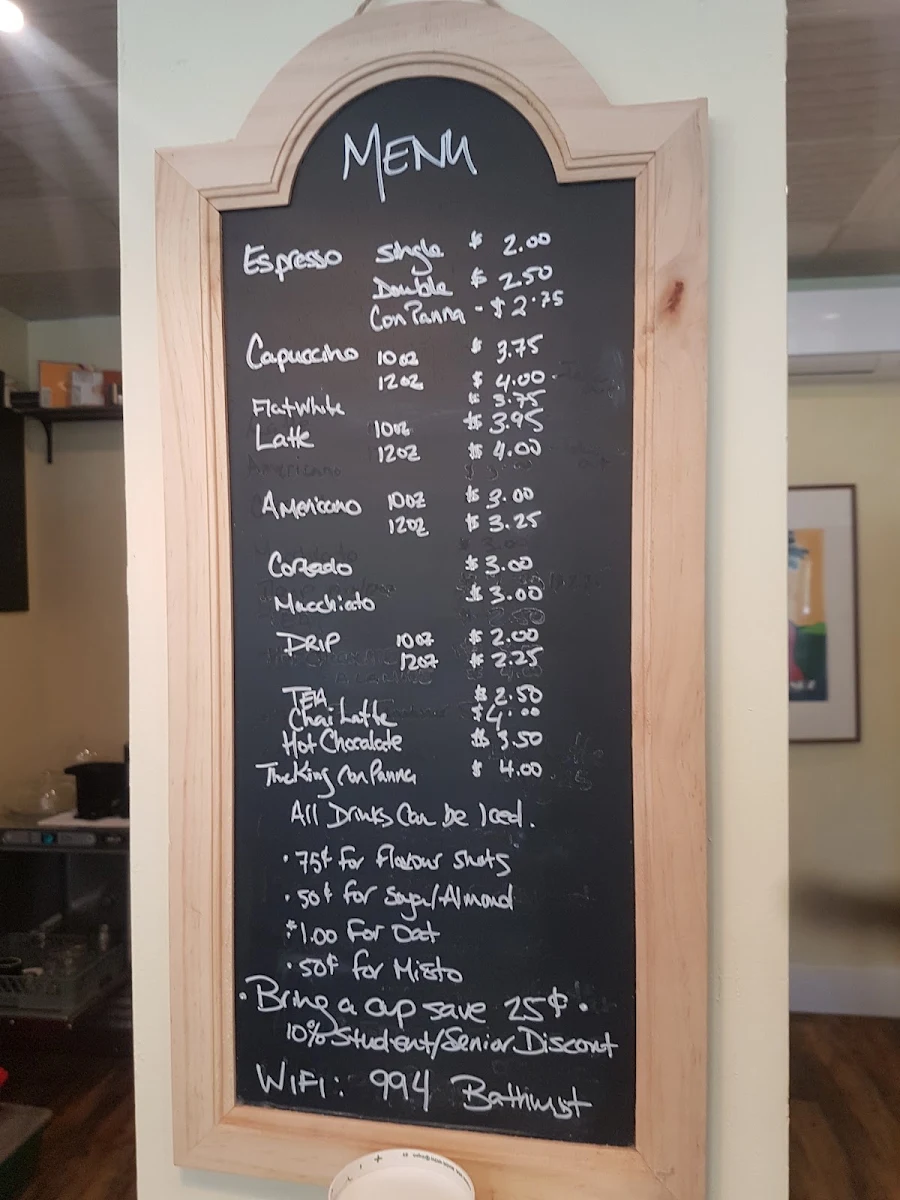 MENU
Espresso Single $ 2.00
Double $ 2.50
Con Panna - $ 2.75
Capuccino 10oz $ 3.75
12oz $ 4.00
Flat White $ 3.75
Latte 10oz $ 3.95
12oz $ 4.00
Americano 10oz $ 3.00
12oz $ 3.25
Cortado $ 3.00
Macchiato $ 3.00
DRIP 10oz $ 2.00
12oz $ 2.25
TEA $ 2.50
Chai Latte $ 4.00
Hot Chocolate $ 3.50
The King Con Panna $ 4.00
All Drinks Can be Iced.
• 75¢ for Flavour Shots
• 50¢ for Soya/Almond
$1.00 For Oat
• 50¢ for Misto
• Bring a cup save 25¢ •
10% Student/Senior Discount
WIFI: 994 Bathurst